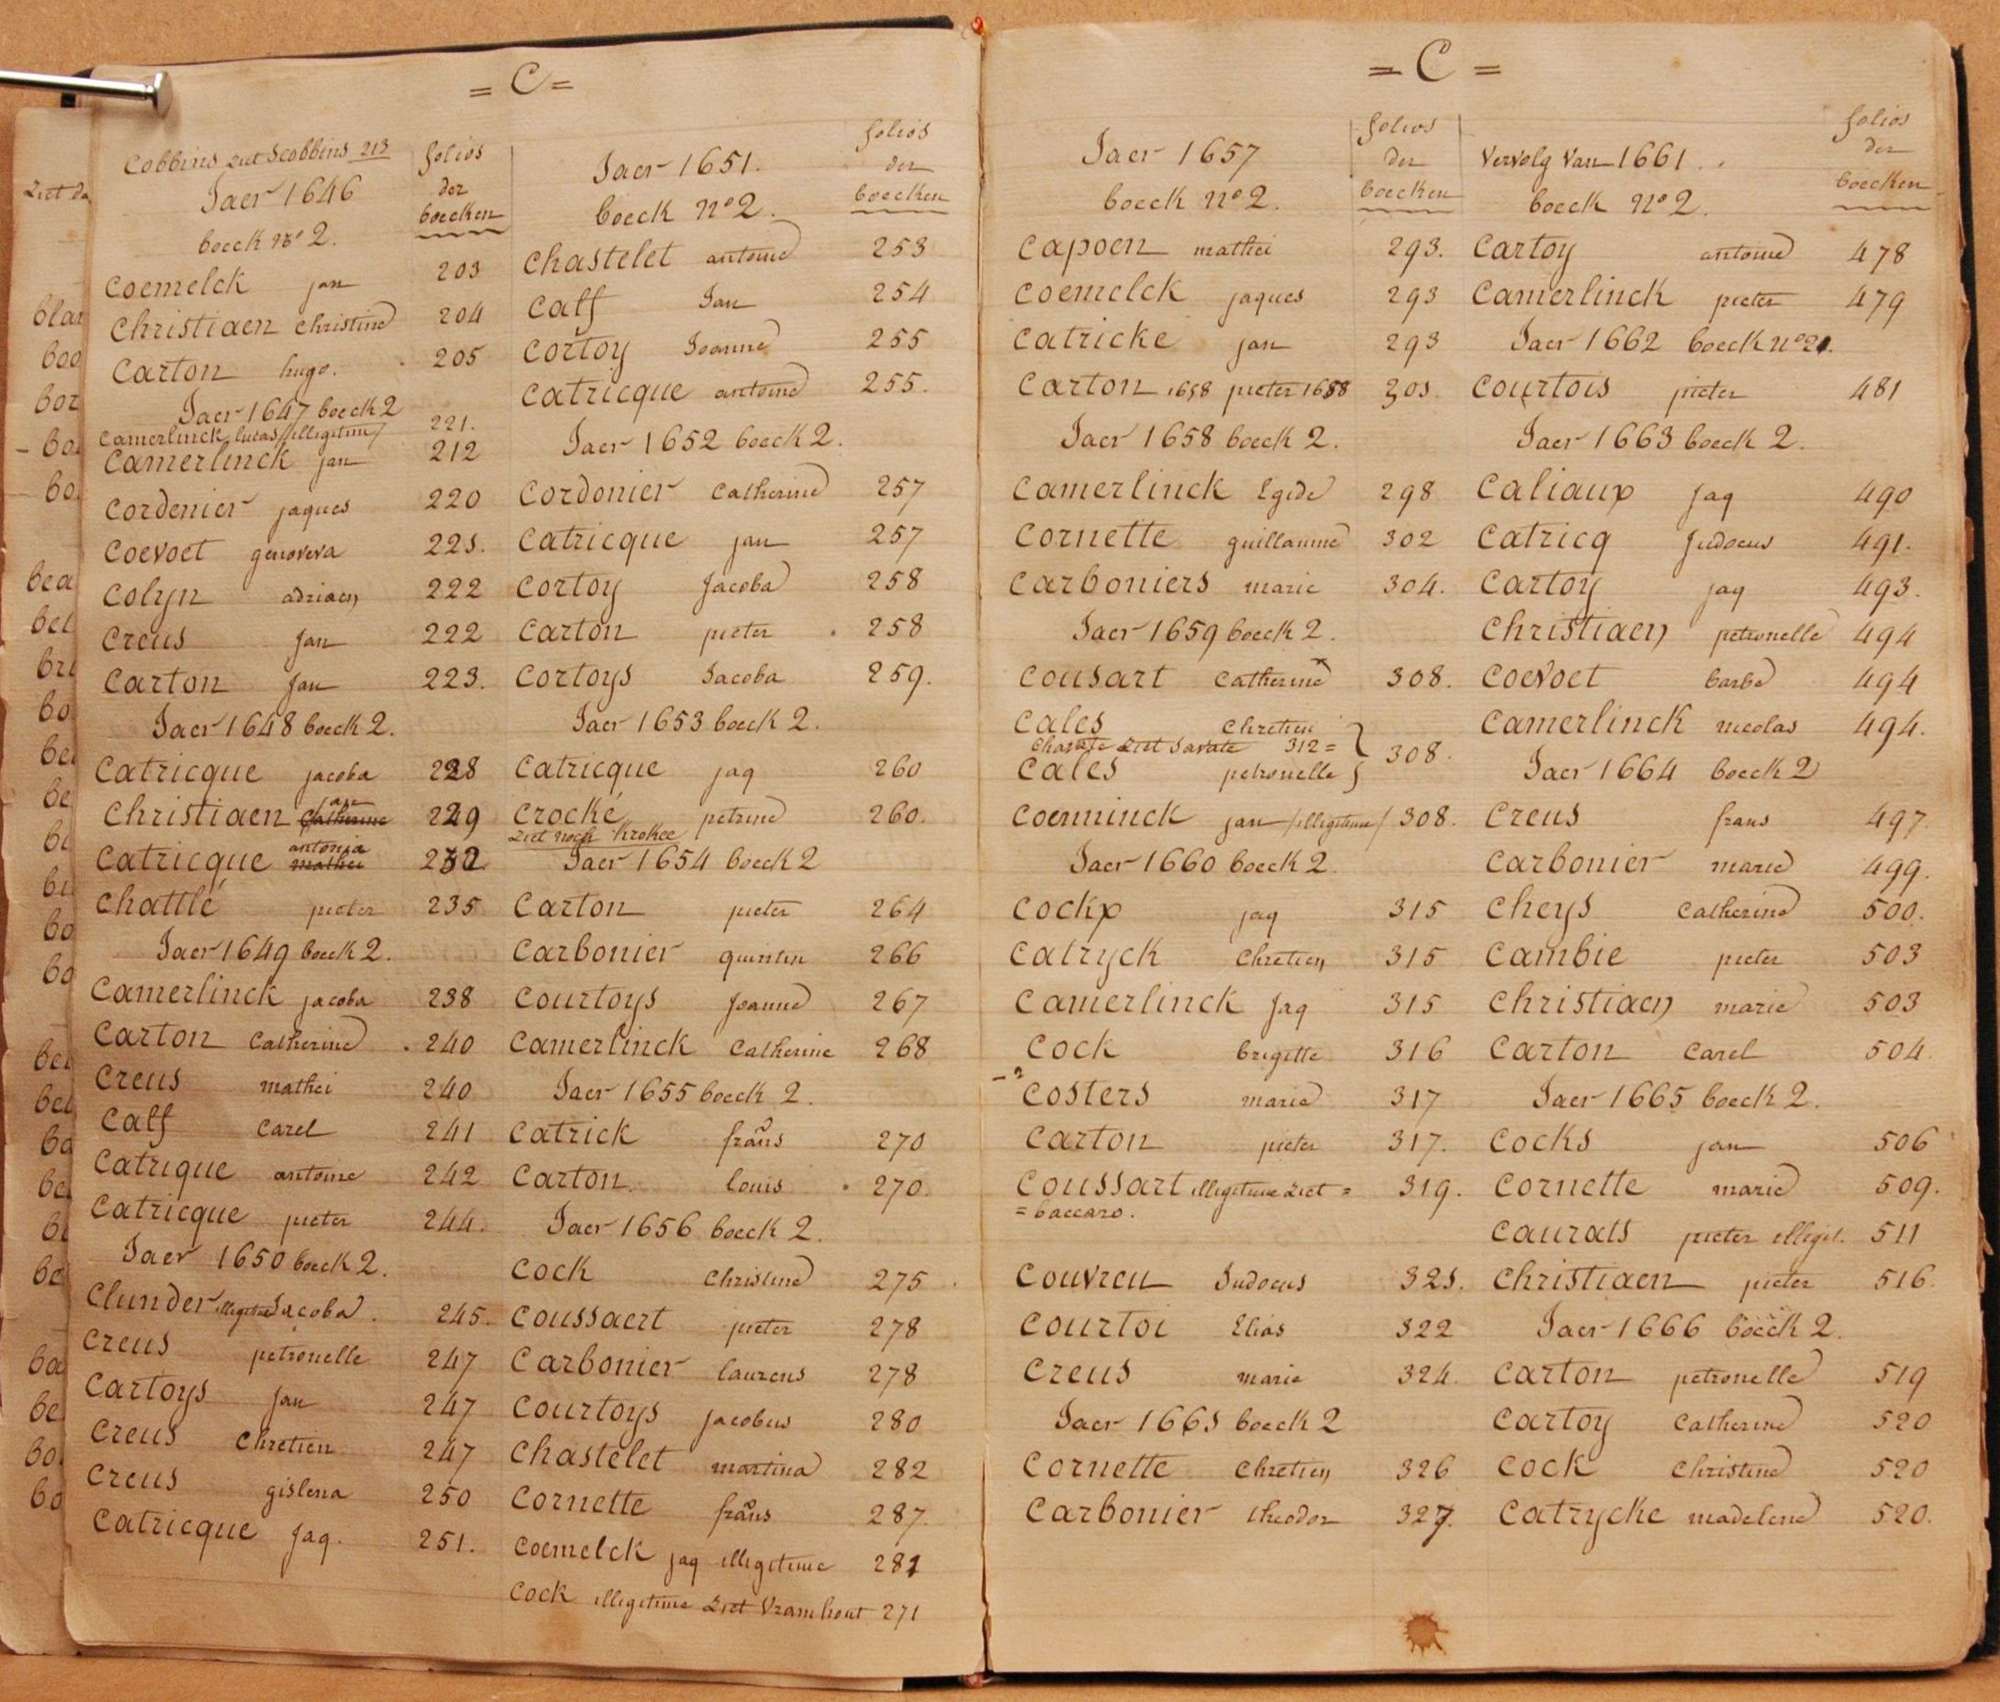 = C =
Cobbins ziet Scobbins 213
folios
der
boecken
Jaer 1646
boeck no 2.
Coemelck jan 203
Christiaen Christine 204
Carton hugo. 205
Jaer 1647 boeck 2
Camerlinck lucas /illegitime/ 221.
Camerlinck jan 212
Cordenier jaques 220
Coevoet genoveva 221.
Colyn adriaen 222
Creus Jan 222
Carton Jan 223.
Jaer 1648 boeck 2.
Catricque jacoba 228
Christiaen Catherine jan 229
Catricque mathei antonia 232
Chattlé pieter 235
Jaer 1649 boeck 2.
Camerlinck jacoba 238
Carton Catherine 240
Creus mathei 240
Calf Carel 241
Catrique antoine 242
Catricque pieter 244.
Jaer 1650 boeck 2.
Clunder illegitime Jacoba. 245.
Creus petronelle 247
Cartoys Jan 247
Creus Chretien 247
Creus gislena 250
Catricque Jaq. 251.
Jaer 1651.
boeck no 2.
folios
der
boecken
Chastelet antoine 253
Calf Jan 254
Cortoy Joanne 255
Catricque antoine 255.
Jaer 1652 boeck 2.
Cordonier Catherine 257
Catricque jan 257
Cortoy Jacoba 258
Carton pieter 258
Cortoys Jacoba 259.
Jaer 1653 boeck 2.
Catricque jaq 260
Crocké petrine 260.
ziet noch krokee
Jaer 1654 boeck 2
Carton pieter 264
Carbonier quinten 266
Courtoys Joanne 267
Camerlinck Catherine 268
Jaer 1655 boeck 2.
Catrick frans 270
Carton louis 270
Jaer 1656 boeck 2.
Cock Christine 275
Coussaert pieter 278
Carbonier laurens 278
Courtoys jacobus 280
Chastelet martina 282
Cornette frans 287
Coemelck jaq illegitime 281
Cock illegitime ziet Vramhout 271
= C =
Jaer 1657
boeck no 2.
folios
der
boecken
Capoen mathei 293.
Coemelck jaques 293
Catricke jan 293
Carton 1658 pieter 1658 301
Jaer 1658 boeck 2.
Camerlinck Egide 298
Cornette guillaume 302
Carboniers marie 304.
Jaer 1659 boeck 2.
Cousart Catherine 308.
Cales Chretien
Chavate ziet Savate 312 = } 308.
Cales petronelle
Coenninck jan /illegitime/ 308.
Jaer 1660 boeck 2.
Cockx jaq 315
Catryck Chretien 315
Camerlinck Jaq 315
Cock brigitte 316
Costers marie 317
Carton pieter 317.
Coussart illegitime ziet = 319.
= baccaro.
Couvreu Judocus 321.
Courtoi Elias 322
Creus marie 324.
Jaer 1661 boeck 2
Cornette Chretien 326
Carbonier theodor 327.
Vervolg van 1661..
boeck no 2.
folios
der
boecken
Cartoy antoine 478
Camerlinck pieter 479
Jaer 1662 boeck no 2.
Courtois pieter 481
Jaer 1663 boeck 2.
Caliaux Jaq 490
Catricq Judocus 491.
Cartoy jaq 493.
Christiaen petronelle 494
Coevoet barbe 494
Camerlinck nicolas 494.
Jaer 1664 boeck 2
Creus frans 497
Carbonier marie 499.
Cheys Catherine 500.
Cambie pieter 503
Christiaen marie 503
Carton Carel 504
Jaer 1665 boeck 2.
Cocks jan 506
Cornette marie 509.
Caurats pieter illegit. 511
Christiaen pieter 516.
Jaer 1666 boeck 2.
Carton petronelle 519
Cartoy Catherine 520
Cock Christine 520
Catrycke madelene 520.